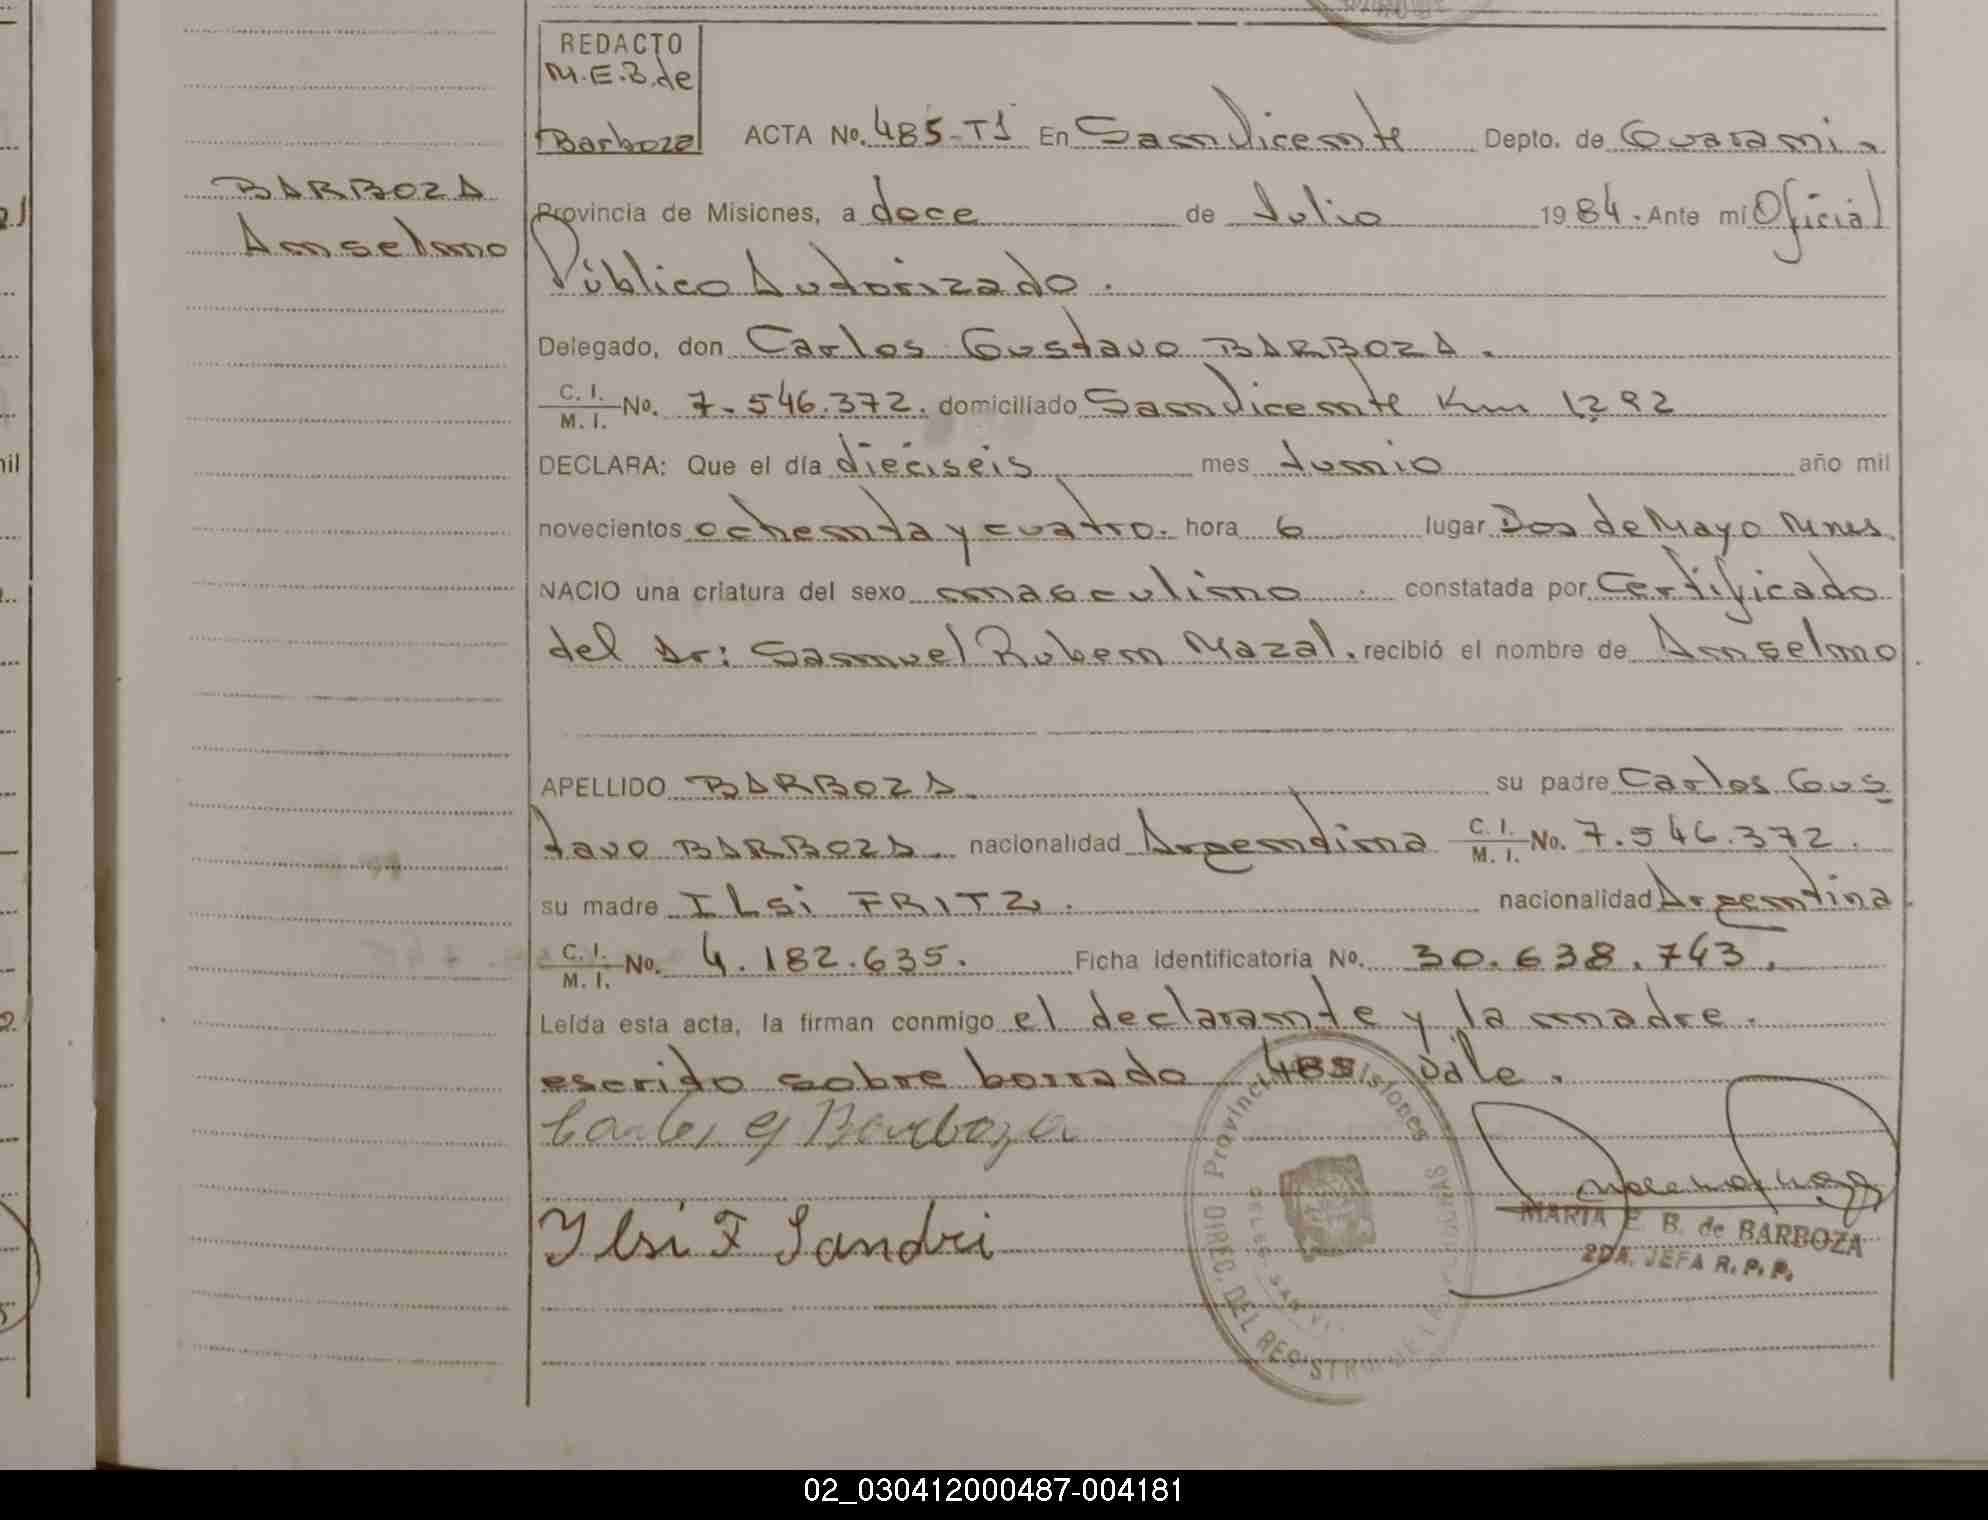 REDACTO
M.E.B. de
Barboza
ACTA No. 485-T1 En San Vicente Depto. de Guarani.
BARBOZA
Provincia de Misiones, a doce de Julio 1984. Ante mí Oficial
Anselmo
Público Autorizado.
Delegado, don Carlos Gustavo BARBOZA.
C. I. / M. I. No. 7.546.372. domiciliado San Vicente Km 1292
DECLARA: Que el día dieciseis mes Junio año mil
novecientos ochenta y cuatro. hora 6 lugar Dos de Mayo Mnes.
NACIO una criatura del sexo masculino constatada por Certificado
del Dr: Samuel Ruben Mazal. recibió el nombre de Anselmo
APELLIDO BARBOZA. su padre Carlos Gus
tavo BARBOZA. nacionalidad Argentina C. I. / M. I. No. 7.546.372.
su madre ILSi FRITZ. nacionalidad Argentina
C. I. / M. I. No. 4.182.635. Ficha Identificatoria No. 30.638.743.
Leída esta acta, la firman conmigo el declarante y la madre.
escrito sobre borrado 485 vale.
Carlos G Barboza
Provincia Misiones
DIREC. DEL REGISTRO DE LAS
Ylsi F Sandri
MARIA E. B. de BARBOZA
2DA. JEFA R. P. P.
02_030412000487-004181